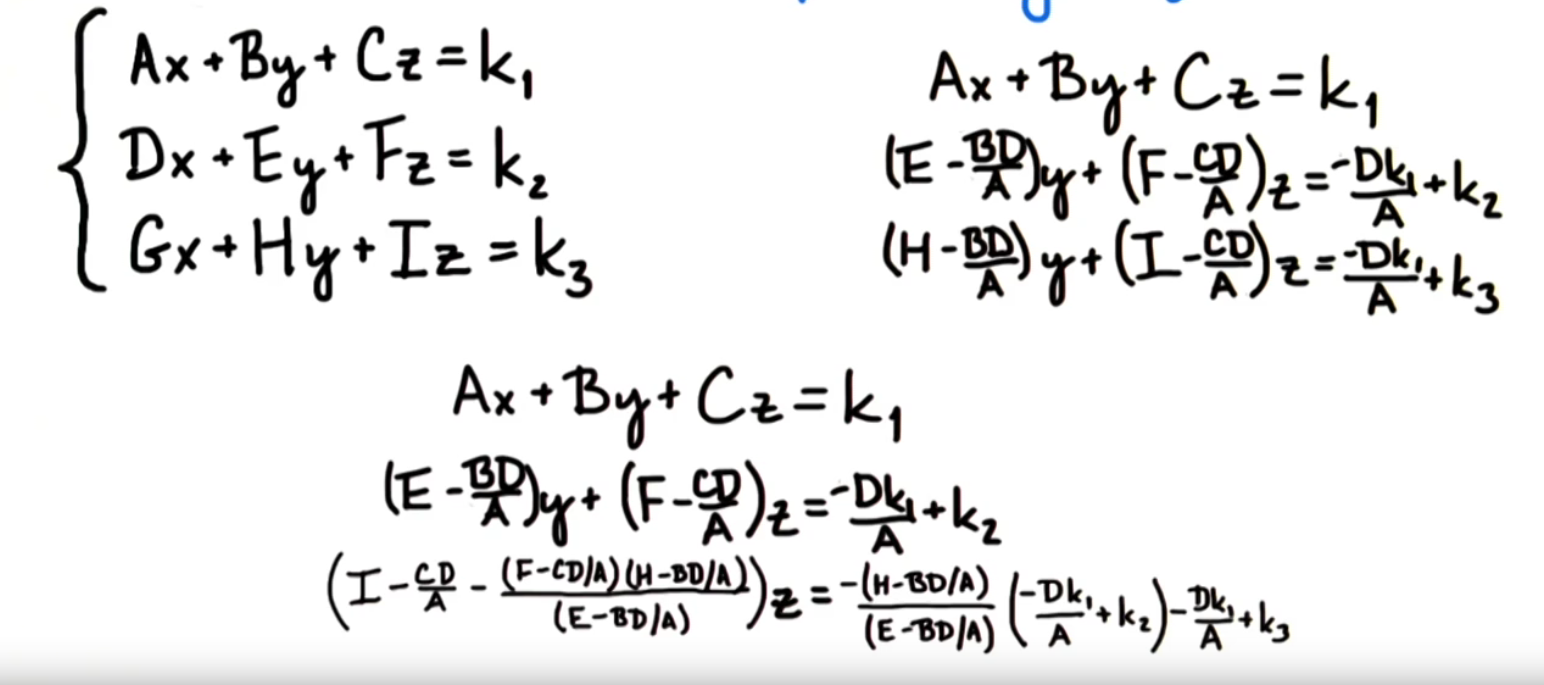 Ax + By + Cz = k₁
Dx + Ey + Fz = k₂
Gx + Hy + Iz = k₃
Ax + By + Cz = k₁
(E - BD/A)y + (F - CD/A)z = -Dk₁/A + k₂
(H - BD/A)y + (I - CD/A)z = -Dk₁/A + k₃
Ax + By + Cz = k₁
(E - BD/A)y + (F - CD/A)z = -Dk₁/A + k₂
(I - CD/A - (F-CD/A)(H-BD/A)/(E-BD/A))z = -(H-BD/A)/(E-BD/A) (-Dk₁/A + k₂) - Dk₁/A + k₃